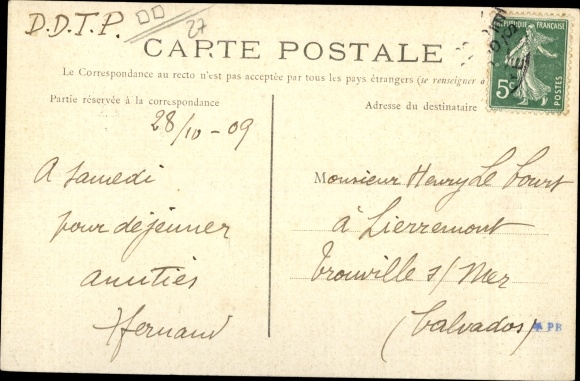 D.D.T.P.
27
CARTE POSTALE
Le Correspondance au recto n'est pas acceptée par tous les pays étrangers (se renseigner à
Partie réservée à la correspondance
Adresse du destinataire
REPUBLIQUE FRANÇAISE
5c
POSTES
28/10 - 09
A samedi
pour déjeuner
amitiés
Hfernand
Monsieur Henry Le Court
à Lierremont
Trouville s/ Mer
(Calvados)
APR